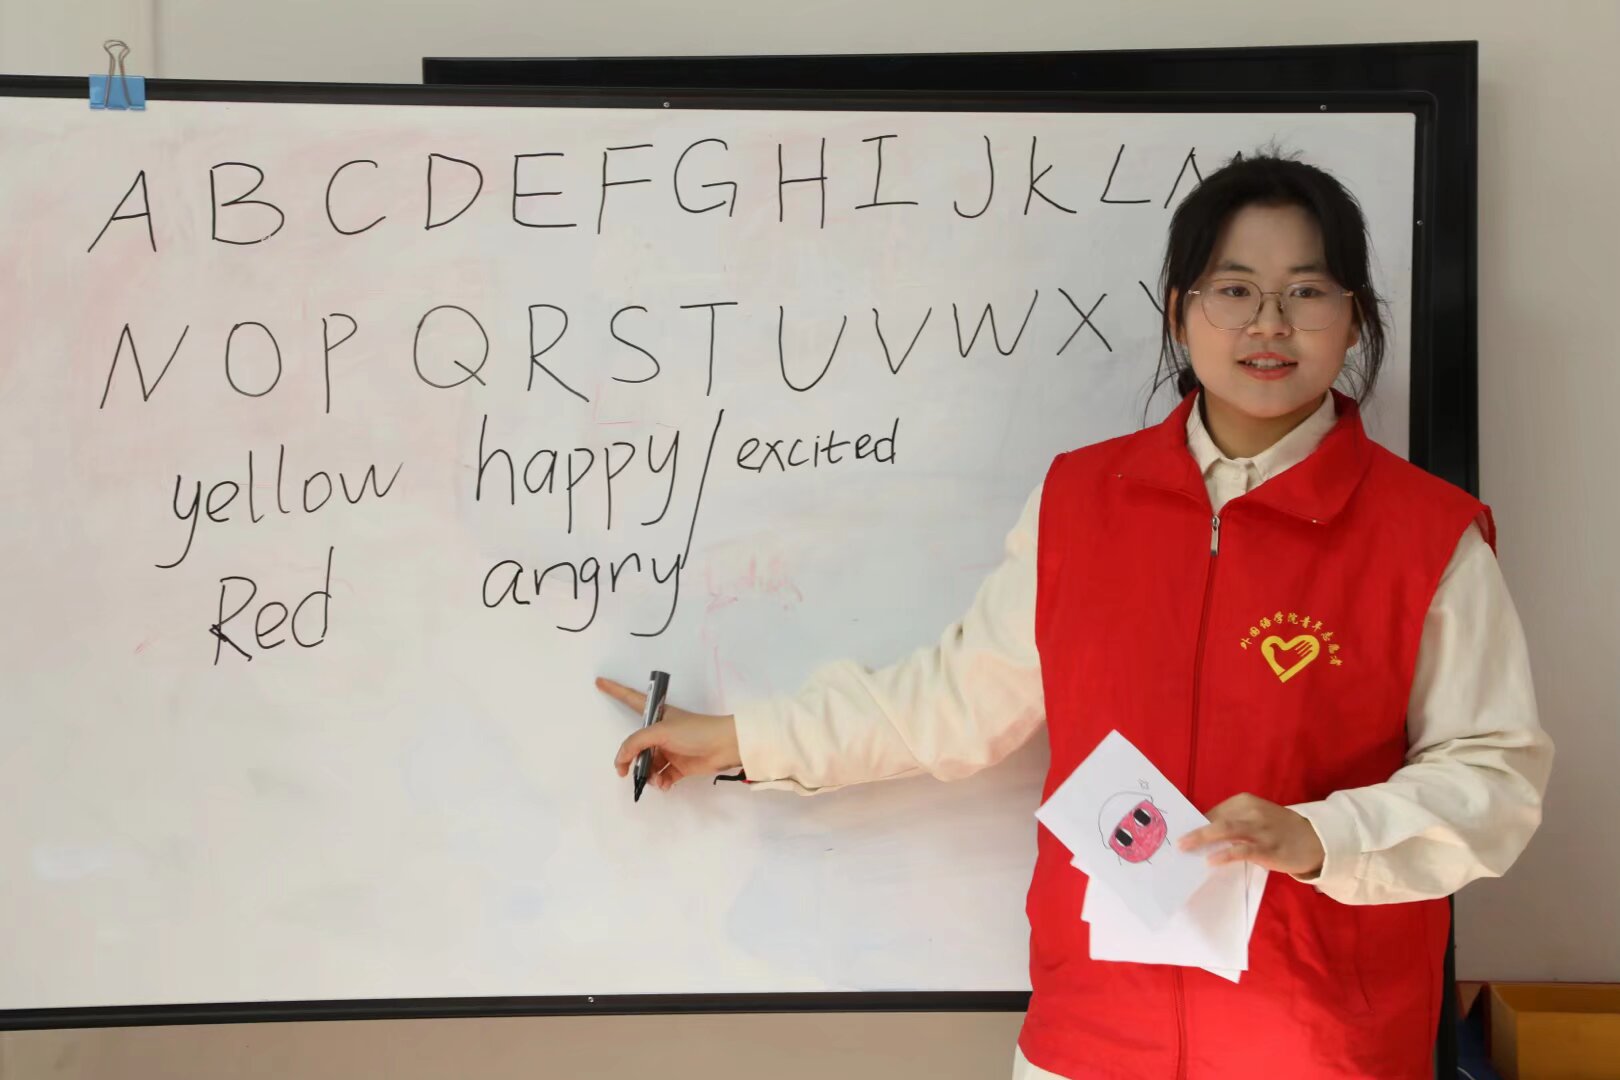 A B C D E F G H I J K L M
N O P Q R S T U V W X Y
yellow happy / excited
Red angry
外国语学院青年志愿者